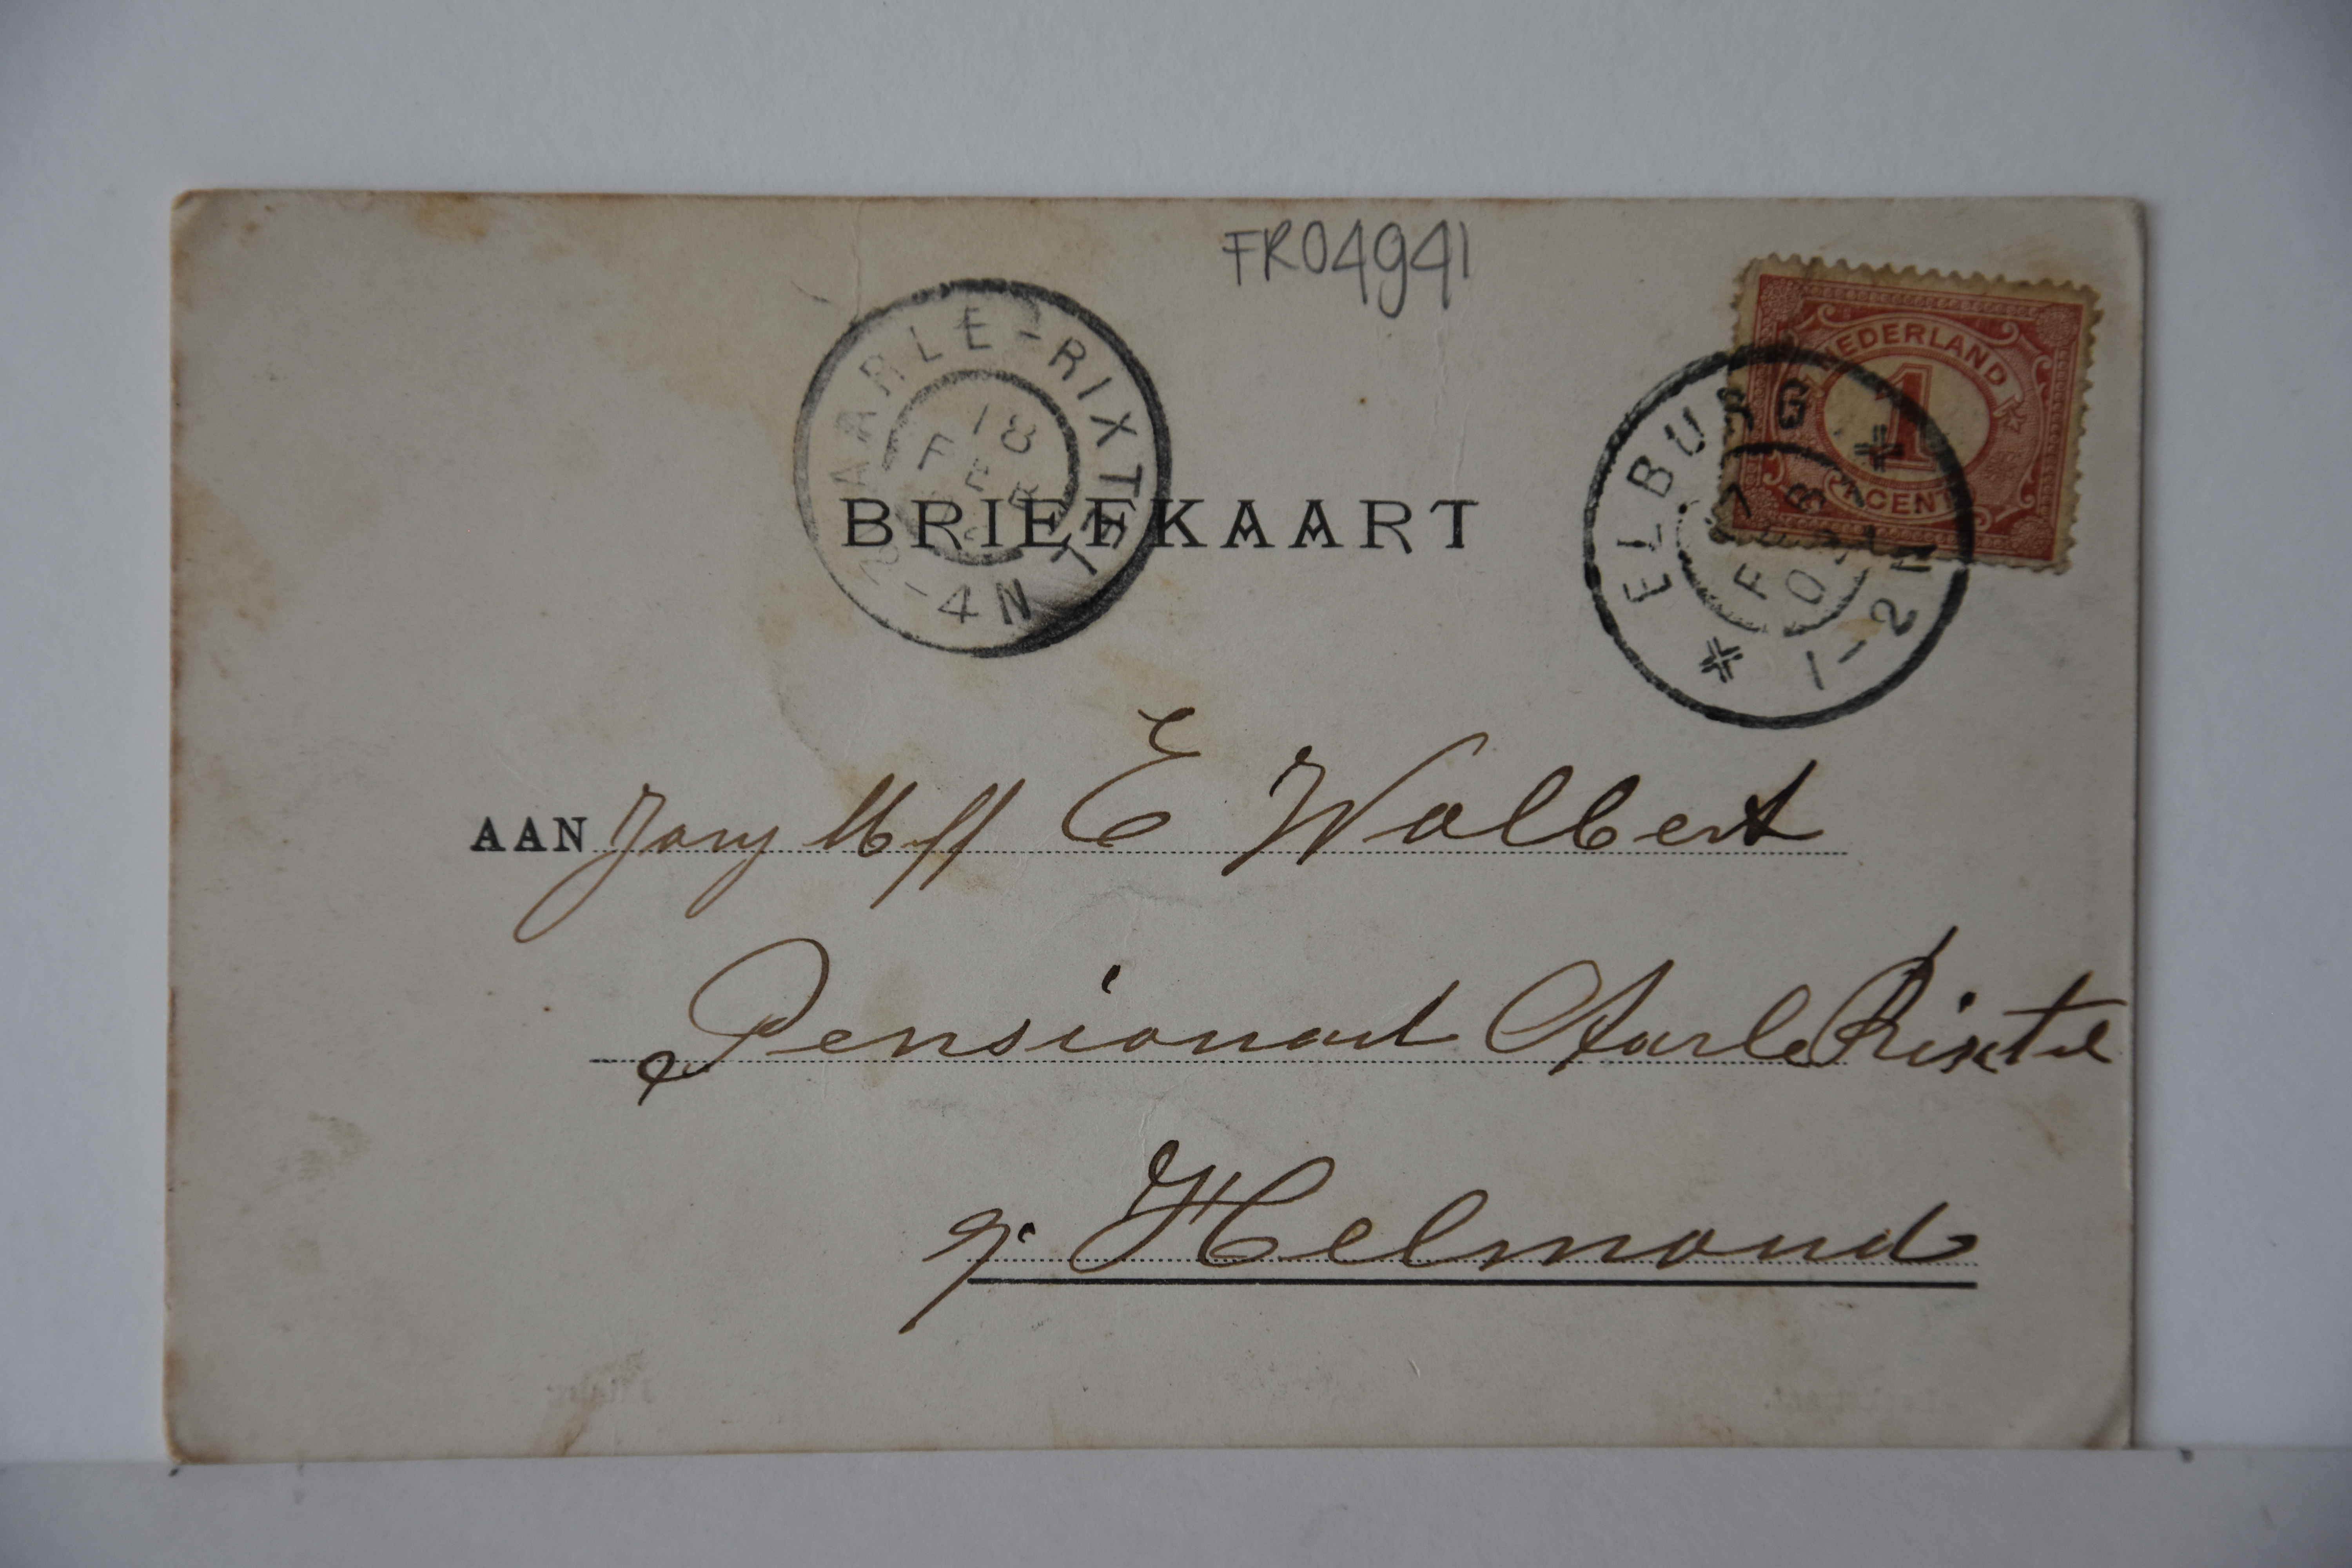 FR04941
NEDERLAND
1
CENT
AARLE-RIXTEL
18
FEB
2-4N
ELBURG
FEB
1-2N
BRIEFKAART
AAN E Wolbert
Pensionaat Aarle Rixtel
p. Helmond